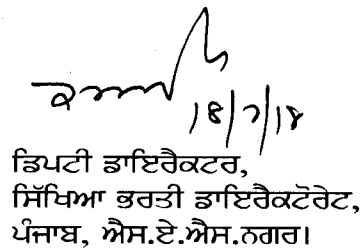 18/7/18
ਡਿਪਟੀ ਡਾਇਰੈਕਟਰ,
ਸਿੱਖਿਆ ਭਰਤੀ ਡਾਇਰੈਕਟੋਰੇਟ,
ਪੰਜਾਬ, ਐਸ.ਏ.ਐਸ.ਨਗਰ।